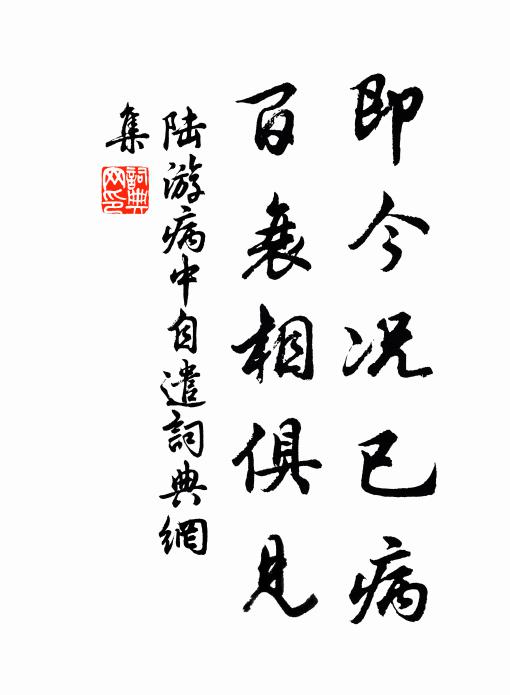 即今况已病
百衰相俱見
陆游病中自遣詞典網
集
詞典
网印